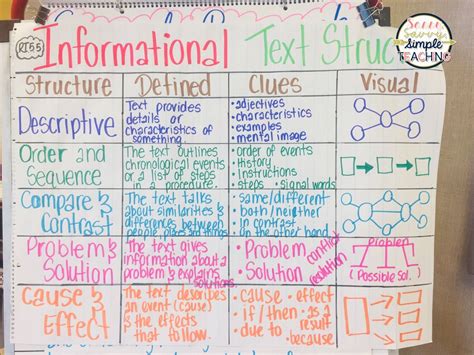 RI5.5
Informational Text Struc
Semi
Savvy
Simple
TEACHING
Structure Defined Clues Visual
Descriptive
Text provides
details or
characteristics of
something.
• adjectives
• characteristics
• examples
• mental image
Order and
Sequence
The text outlines
chronological events
or a list of steps
in a procedure.
• order of events
• History
• Instructions
• steps • signal words
Compare &
Contrast
The text talks
about similarities &
differences between
people, places and things
• same/different
• both/neither
• in contrast
• on the other hand
Problem &
Solution
The text gives
information about a
problem & explains
solutions
• Problem conflict
• Solution resolution
Problem
(Possible Sol.)
Cause &
Effect
The text describes
an event (cause)
& the effects
that to follow.
• cause • effect
• if / then • as a
result
• due to • because